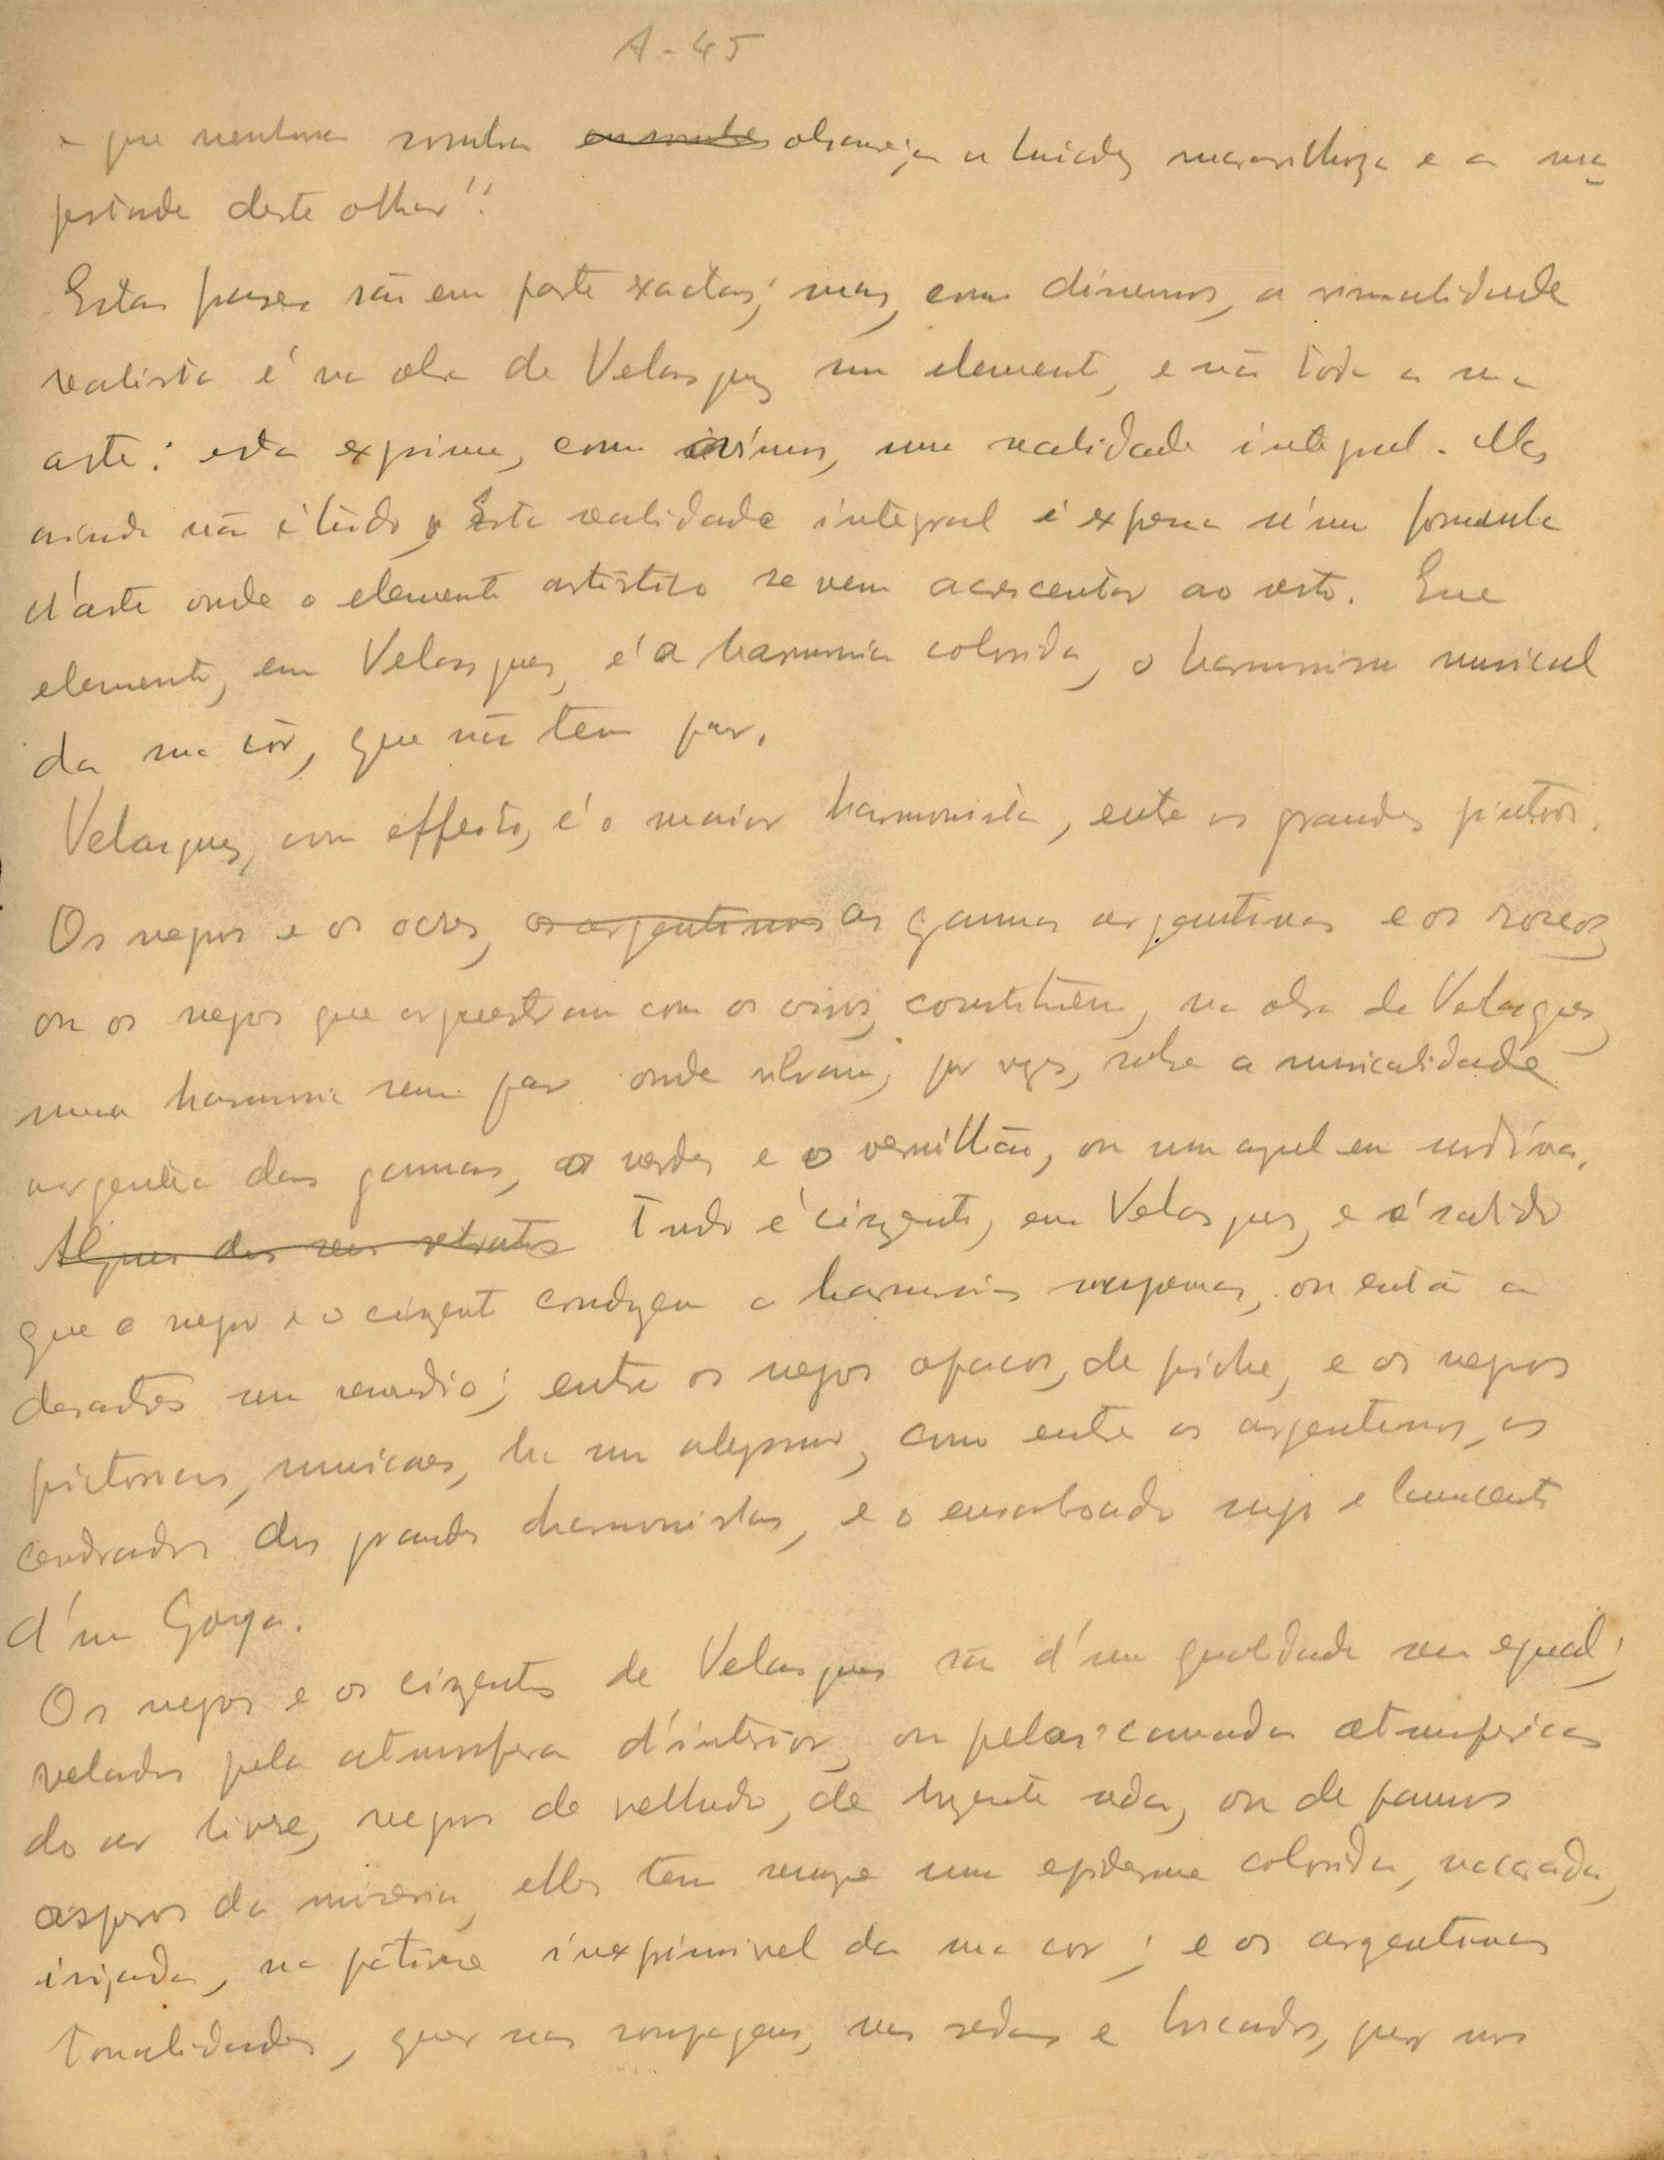 A-45
e que nenhuma sombra ou nuvem a lucidez maravilhosa e a ma
gestade deste olhar".
Estas frases são em parte exactas; mas, como dissemos, a visualidade
realista é na obra de Velasquez um elemento, e não toda a sua
arte: esta exprime, como vimos, uma realidade integral. Mas
ainda não é tudo, Esta realidade integral é expressa n'uma formula
d'arte onde o elemento artistico se vem acrescentar ao resto. Esse
elemento, em Velasquez, é a harmonia colorida, o harmonismo musical
da sua côr, que não tem par.
Velasquez, com effeito, é o maior harmonista, entre os grandes pintores.
Os negros e os ocres, os argentinos as gammas argentinas e os roseos,
ou os negros que orquestram com os cinzas, constituem, na obra de Velasquez,
uma harmonia sem par onde silvam, por vezes, sobre a musicalidade
argentea das gammas, os verdes e o vermilhão, ou um azul em surdina.
Alguns dos seus retratos Tudo é cinzento, em Velasquez, e é sabido
que o negro e o cinzento conduzem a harmonias supremas, ou então a
desastres sem remedio; entre os negros opacos, de piche, e os negros
pictoricos, musicaes, ha um abysmo, como entre os argentinos, os
cendrados dos grandes harmonistas, e o ensaboado sujo e lamacento
d'um Goya.
Os negros e os cinzentos de Velasquez são d'uma qualidade sem egual;
velados pela atmosfera d'interior, ou pelas camadas atmosfericas
do ar livre, negros de velludo, de luzente seda, ou de pannos
asperos da miseria, elles tem sempre uma epiderme colorida, nacarada,
irisada, na pátine inexprimivel da sua cor; e os argentinas
tonalidades, quer nas roupagens, nas sedas e brocados, quer nos